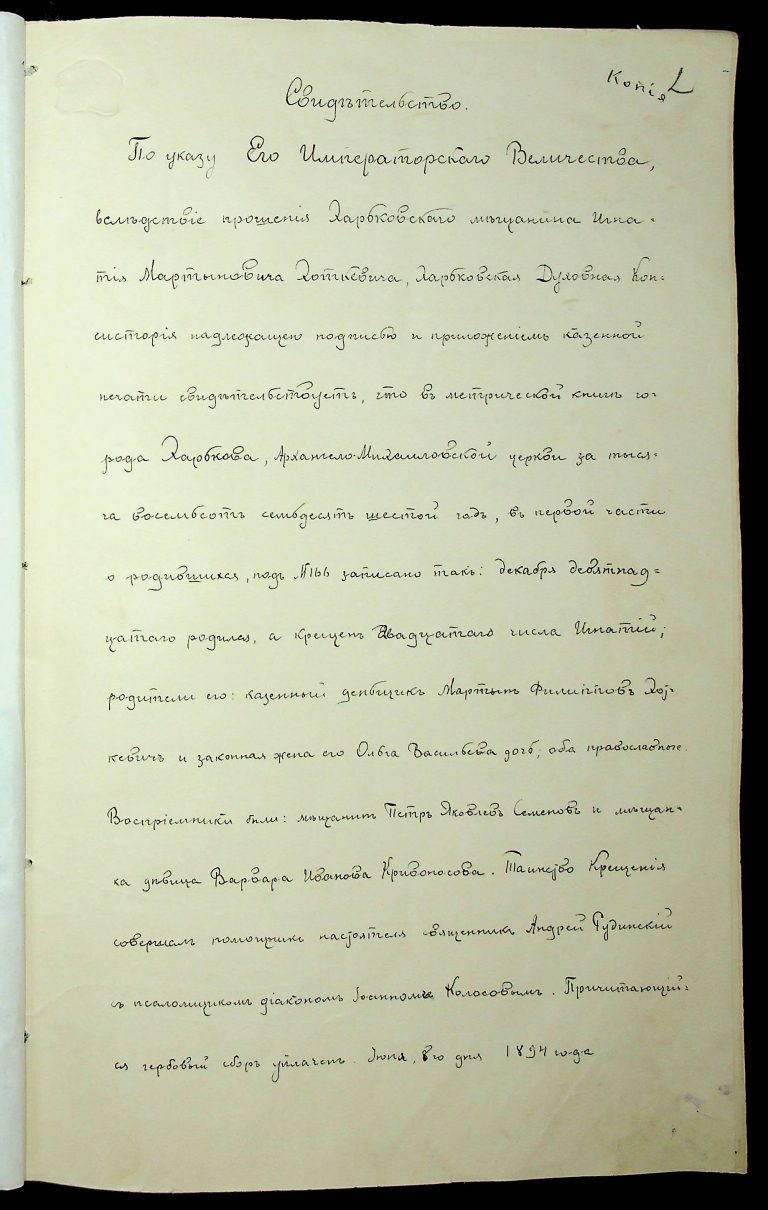 Копія
Свидѣтельство.
По указу Его Императорскаго Величества,
вслѣдствіе прошенія Харьковскаго мѣщанина Игна-
тія Мартыновича Хоткевича, Харьковская Духовная Кон-
систорія надлежащею подписью и приложеніемъ казенной
печати свидѣтельствуетъ, что въ метрической книгѣ го-
рода Харькова, Архангело-Михаиловской церкви за тыся-
ча восемьсотъ семьдесятъ шестой годъ, въ первой части
о родившихся, подъ №166 записано такъ: декабря девятнад-
цатаго родился, а крещенъ двадцатаго числа Игнатій;
родители его: казенный деньщикъ Мартынъ Филипповъ Хот-
кевичъ и законная жена его Ольга Васильева дочь; оба православные.
Воспріемники были: мѣщанинъ Петръ Яковлевъ Семеновъ и мѣщан-
ка дѣвица Варвара Иванова Кривоносова. Таинство Крещенія
совершалъ помощникъ настоятеля священникъ Андрей Гудинскій
съ псаломщикомъ діакономъ Іоанномъ Колосовымъ. Причитающій-
ся гербовый сборъ уплаченъ. Іюня, 8го дня 1894 года